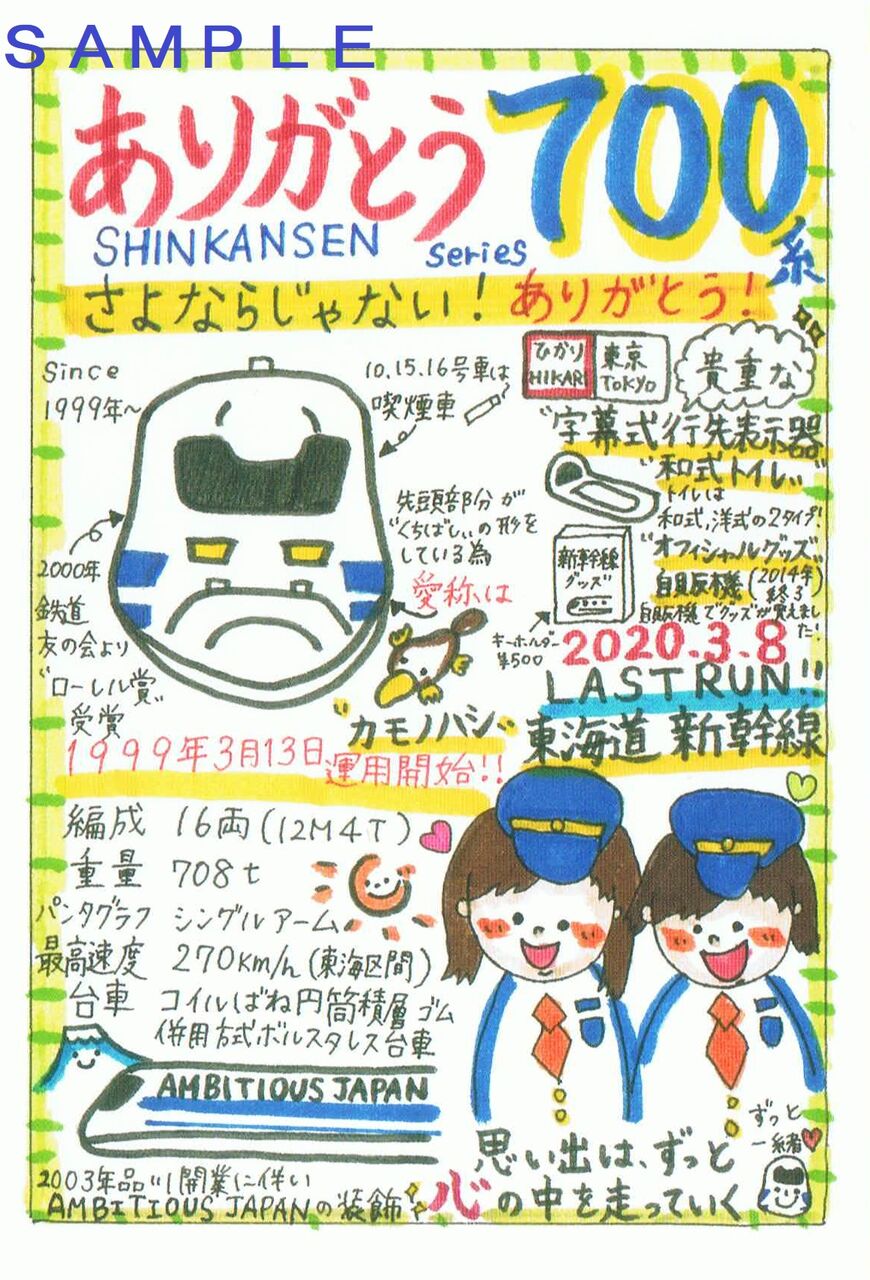 SAMPLE
ありがとう700系
SHINKANSEN series
さよならじゃない！ありがとう！
Since
1999年～
10.15.16号車は
喫煙車
ひかり
HIKARI
東京
TOKYO
貴重な
"字幕式行先表示器
"和式トイレ"
トイレは
和式、洋式の2タイプ！
先頭部分が
"くちばし"の形を
している為
愛称は
"カモノハシ"
2000年
鉄道
友の会より
"ローレル賞"
受賞
新幹線
グッズ
"オフィシャルグッズ"
自販機(2014年終了)
自販機でグッズが買えました！
キーホルダー
¥500
2020.3.8
LAST RUN!!
東海道新幹線
1999年3月13日
運用開始!!
編成 16両(12M4T)
重量 708t
パンタグラフ シングルアーム
最高速度 270km/h(東海区間)
台車 コイルばね円筒積層ゴム
併用方式ボルスタレス台車
AMBITIOUS JAPAN
2003年品川開業に伴い
AMBITIOUS JAPANの装飾
思い出は、ずっと
心の中を走っていく
ずっと
一緒